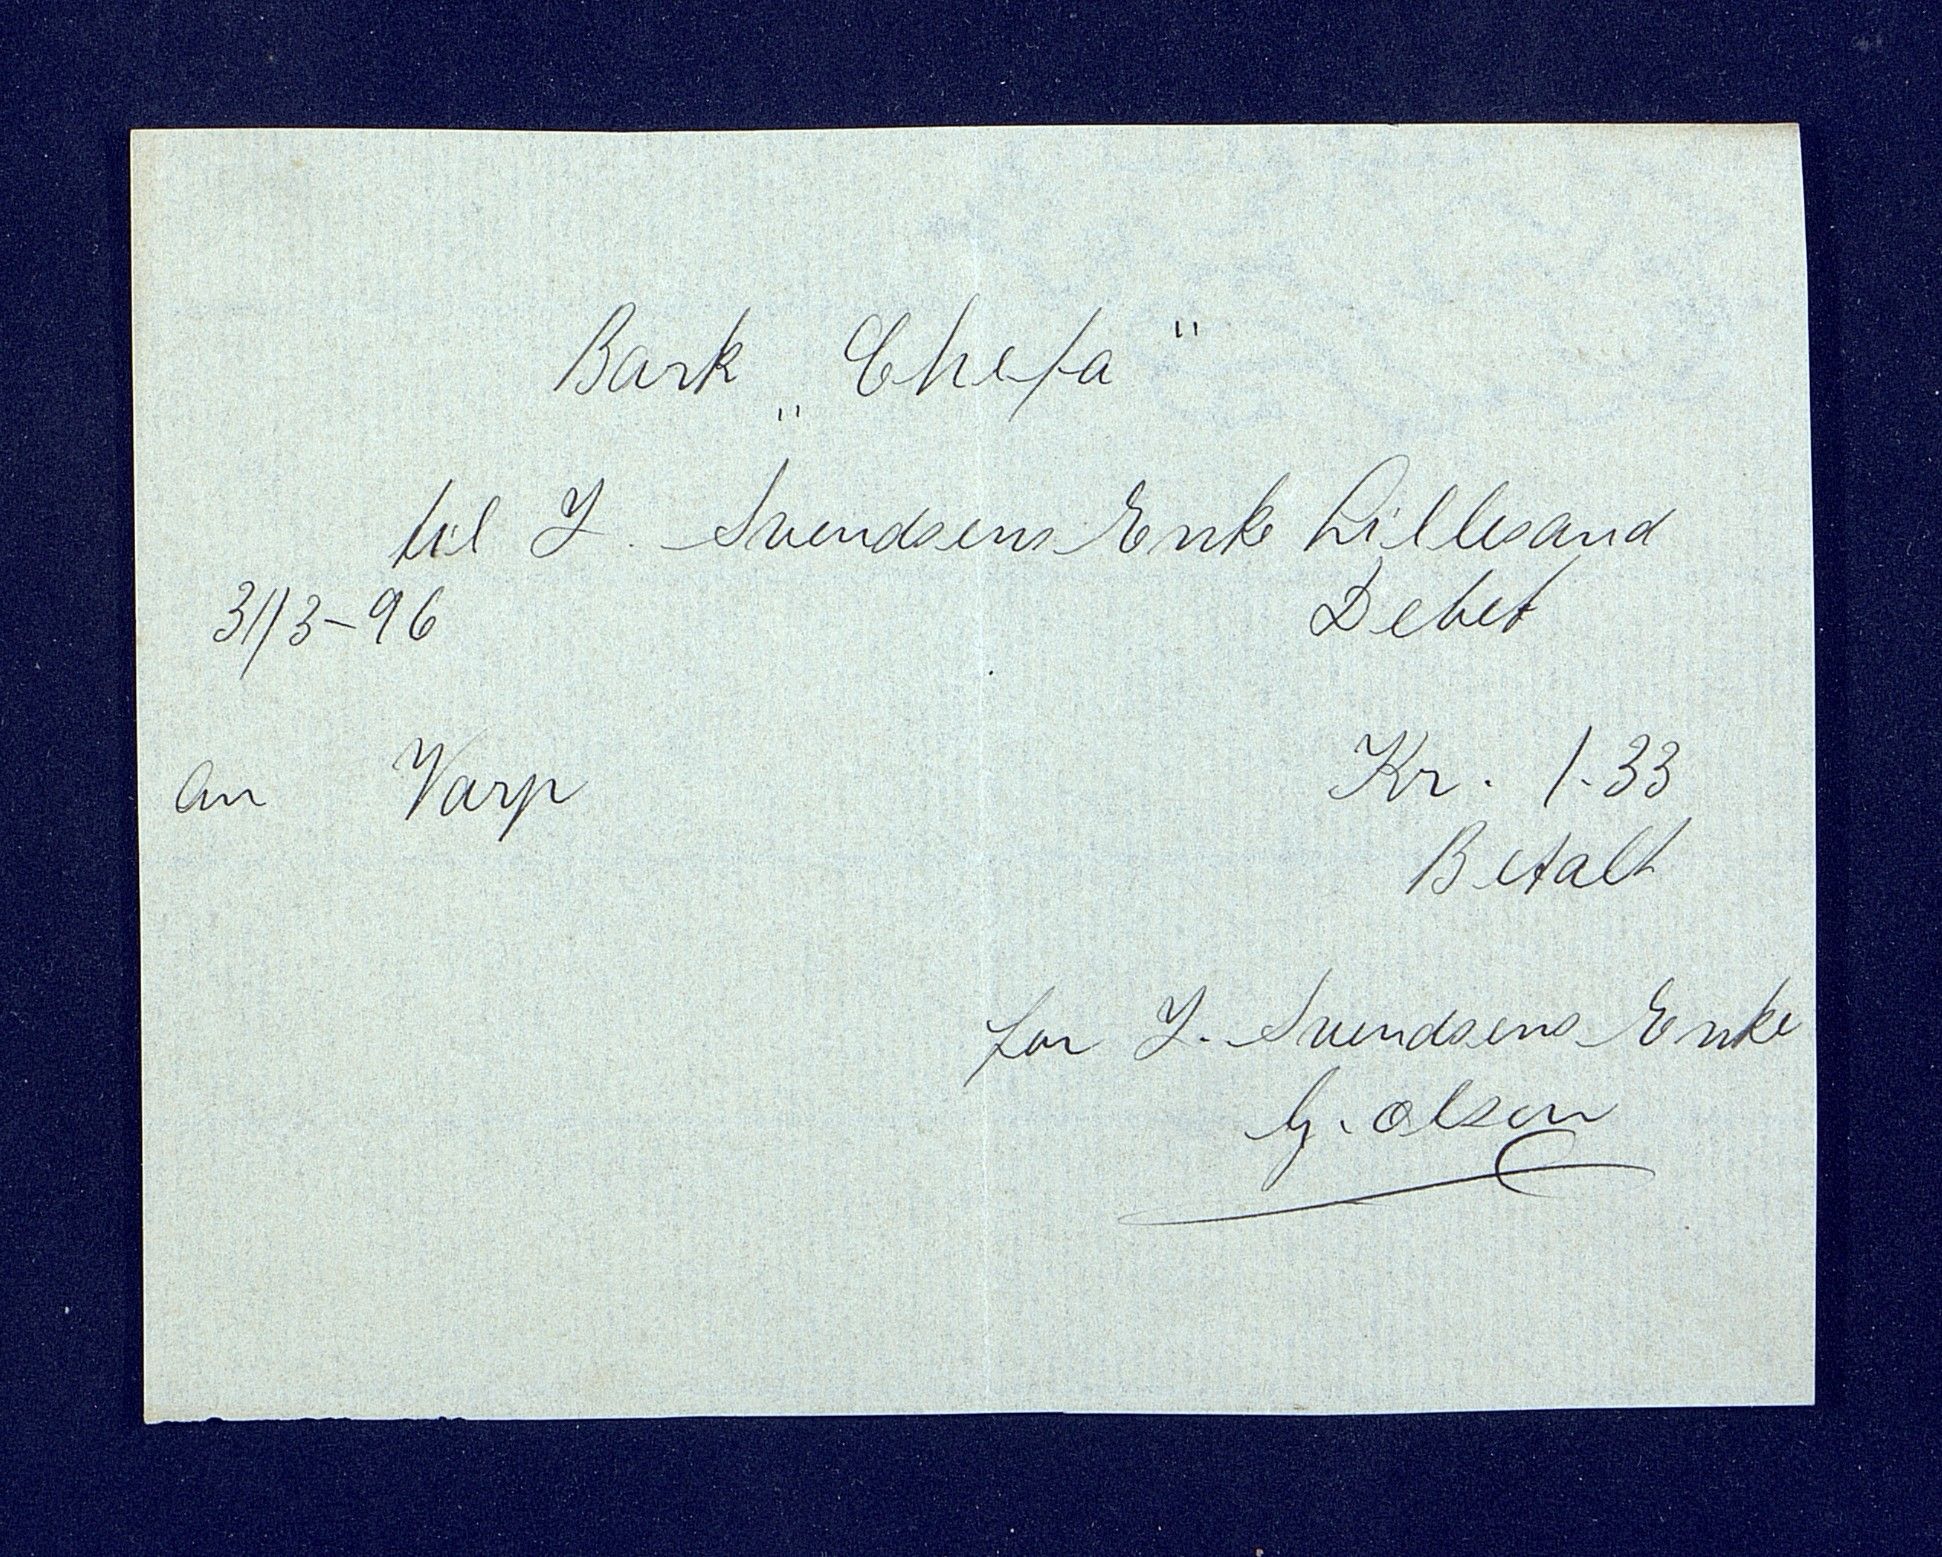 Bark „Chefa"
til J. Svendsens Enke Lillesand
31/3-96 Debet
An Varp Kr. 1.33
Betalt
for J. Svendsens Enke
G. Olsen